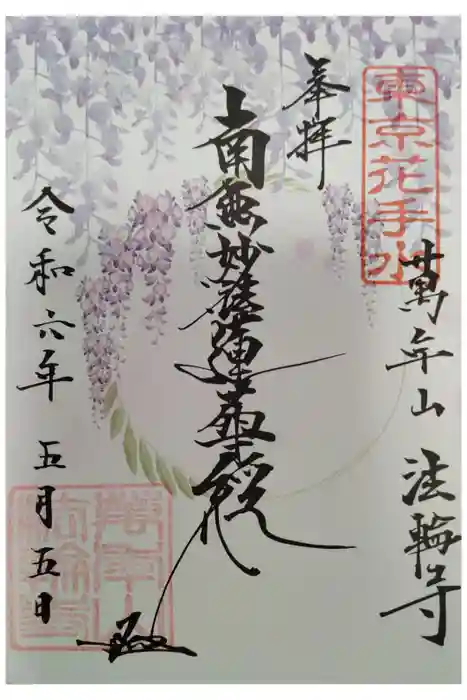 東京花手水
萬年山 法輪寺
奉拝
南無妙法蓮華経
令和六年 五月五日